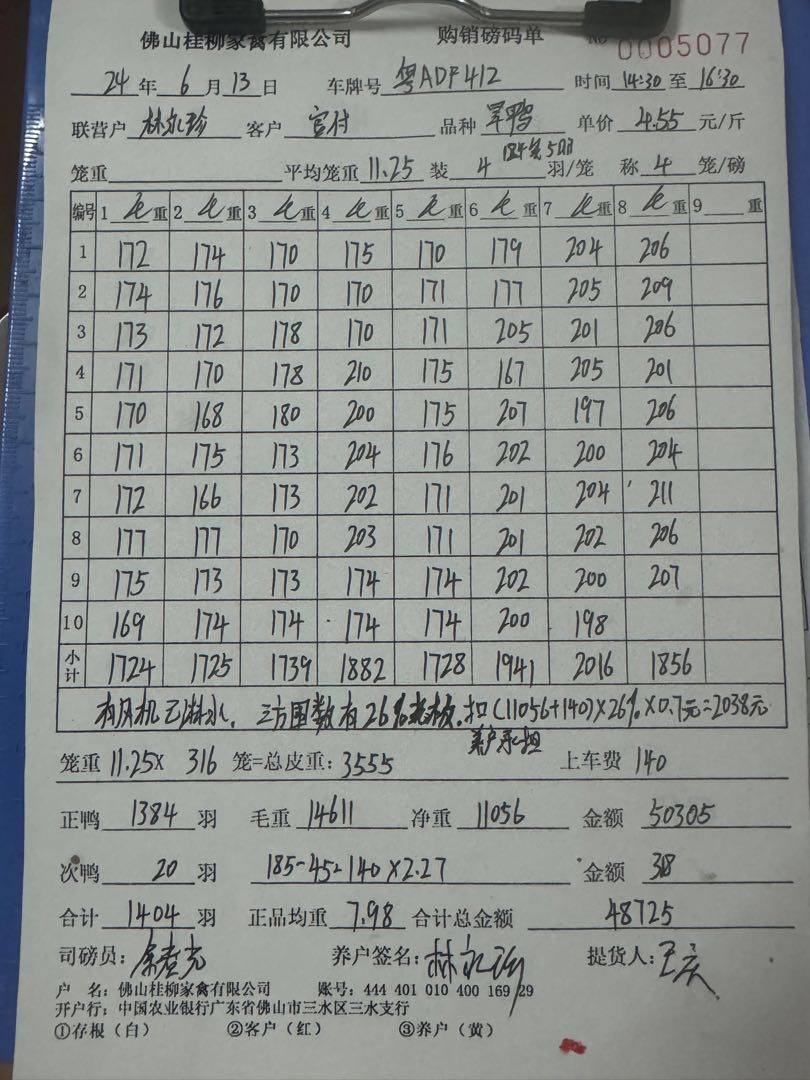 佛山桂柳家禽有限公司 购销磅码单 No 0005077
24 年 6 月 13 日 车牌号 粤ADF412 时间 14:30 至 16:30
联营户 林永珍 客户 官付 品种 旱鸭 单价 4.55 元/斤
笼重 平均笼重 11.25 装 4 羽/笼 称 4 笼/磅
编号 1 毛重 2 毛重 3 毛重 4 毛重 5 毛重 6 毛重 7 毛重 8 毛重 9 重
1 172 174 170 175 170 179 204 206
2 174 176 170 170 171 177 205 209
3 173 172 178 170 171 205 201 206
4 171 170 178 210 175 167 205 201
5 170 168 180 200 175 207 197 206
6 171 175 173 204 176 202 200 204
7 172 166 173 202 171 201 204 211
8 177 177 170 203 171 201 202 206
9 175 173 173 174 174 202 200 207
10 169 174 174 174 174 200 198
小计 1724 1725 1739 1882 1728 1941 2016 1856
有风机已淋水, 三方国数有26% 扣(11056+140)×26%×0.7元=2038元
养户承担
笼重 11.25× 316 笼=总皮重: 3555 上车费 140
正鸭 1384 羽 毛重 14611 净重 11056 金额 50305
次鸭 20 羽 185-45=140×2.27 金额 318
合计 1404 羽 正品均重 7.98 合计总金额 48725
司磅员: 养户签名: 提货人: 王庆
户 名: 佛山桂柳家禽有限公司 账号: 444 401 010 400 169 29
开户行: 中国农业银行广东省佛山市三水区三水支行
①存根(白) ②客户(红) ③养户(黄)